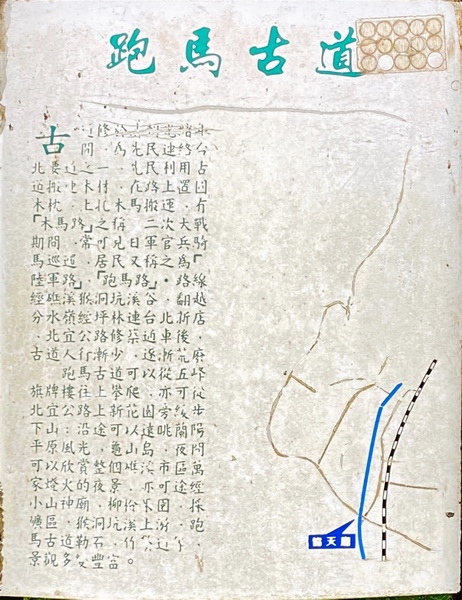 跑馬古道
古道修於
間，為先民連絡
北要道之一，先民利用古
道搬運木材，在路上置圓
木枕，上托木馬搬運，有
「木馬路」之稱。二次大戰
期間，常可見日軍官兵騎
馬巡道，居民又稱之為「
陸軍路」、「跑馬路」。路線
經礁溪猴洞坑溪谷，翻越
分水嶺經坪林連台北折店
，北宜公路修築通車後，
古道人行漸少，逐漸荒廢
跑馬古道可以從五峰
旗牌樓往上攀爬，亦可從
北宜公路上新花園旁緩步
下山；沿途可以遠眺蘭陽
平原風光，龜山島，夜間
可以欣賞整個礁溪市區萬
家燈火的夜景，亦可途經
小山神廟，柳杉果園，採
礦區，猴洞坑溪上游，跑
馬古道勒石，竹
景觀多變豐富。